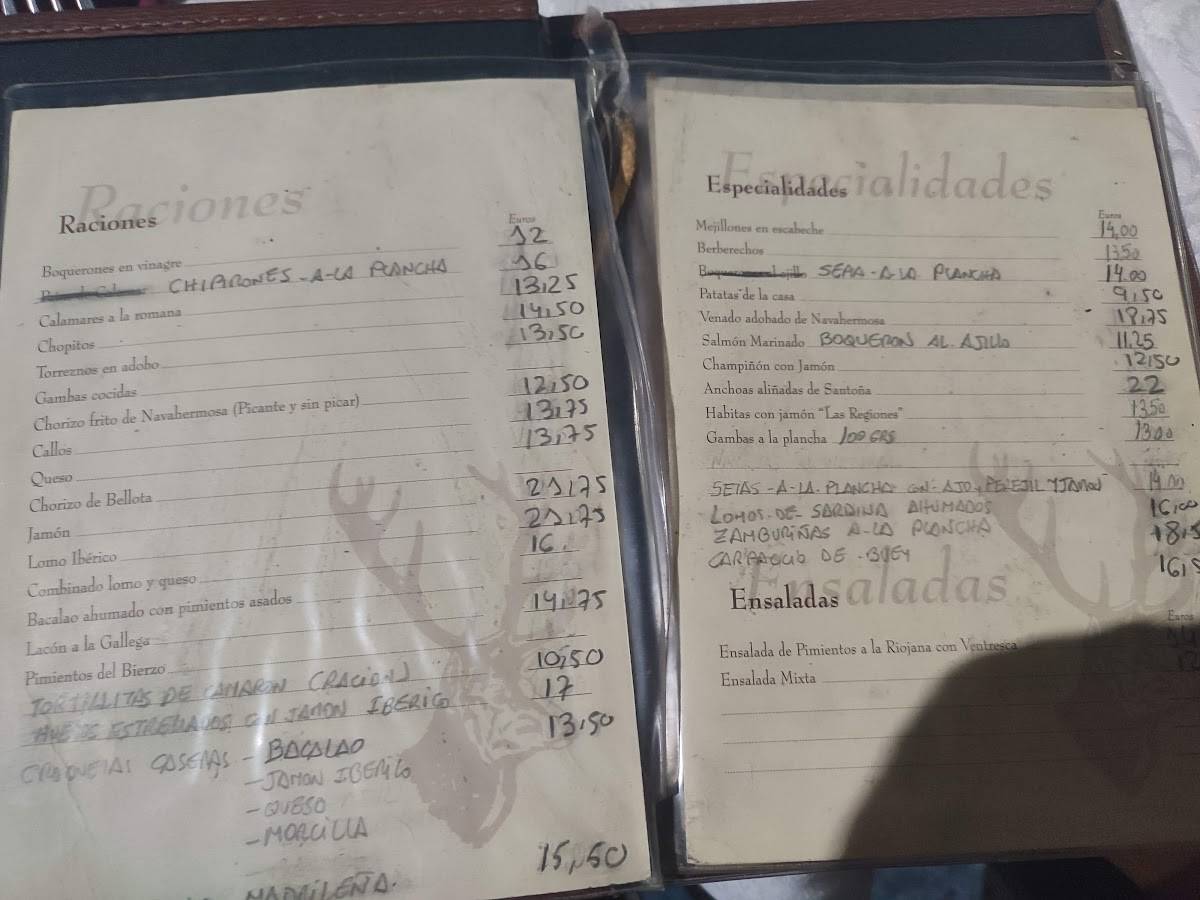 Raciones
Raciones
Euros
Boquerones en vinagre 12
CHIPIRONES-A-LA PLANCHA 16
Calamares a la romana 13,25
Chopitos 14,50
Torreznos en adobo 13,50
Gambas cocidas
Chorizo frito de Navahermosa (Picante y sin picar) 12,50
Callos 13,75
Queso 13,75
Chorizo de Bellota
Jamón 21,75
Lomo Ibérico 21,75
Combinado lomo y queso 16
Bacalao ahumado con pimientos asados
Lacón a la Gallega 14,75
Pimientos del Bierzo
TORTILLITAS DE CAMARON (RACION) 10,50
HUEVOS ESTRELLADOS CON JAMON IBERICO 17
CROQUETAS CASERAS - BACALAO 13,50
- JAMON IBERICO
- QUESO
- MORCILLA
MADRILEÑA. 15,50
Especialidades
Especialidades
Euros
Mejillones en escabeche 14,00
Berberechos 13,50
SEPIA-A-LA PLANCHA 14.00
Patatas de la casa 9,50
Venado adobado de Navahermosa 18,75
Salmón Marinado BOQUERON AL AJILLO 11.25
Champiñón con Jamón 12,50
Anchoas aliñadas de Santoña 22
Habitas con jamón "Las Regiones" 13,50
Gambas a la plancha 100 GRS 13,00
SETAS-A-LA-PLANCHA CON-AJO, PEREJIL Y JAMON 14.00
LOMOS-DE-SARDINA AHUMADOS 16,00
ZAMBURIÑAS A-LA PLANCHA 18,5
CARPACCIO DE-BUEY 16,5
Ensaladas
Ensaladas
Euros
Ensalada de Pimientos a la Riojana con Ventresca
Ensalada Mixta